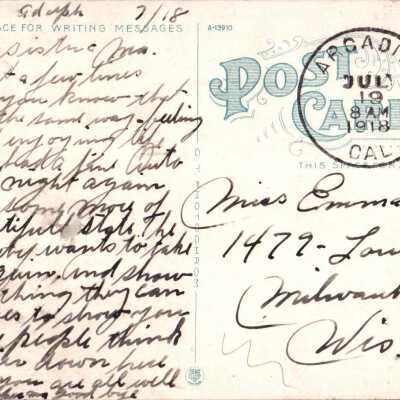 Adolph 7/18
ACE FOR WRITING MESSAGES A-13910
sister Ma.
t a few lines
you know that
the same way feeling
enjoying life
had a fine Auto
night again
some more of
tiful State the
by wants to take
again, and show
thing they can
es to show you
people think
down here
you are all well
good bye
POST CAR
THIS SPACE
ARCADI
JUL
19
8 AM
1918
CAL
Miss Emma
1479- Lou
Milwauk
Wis.